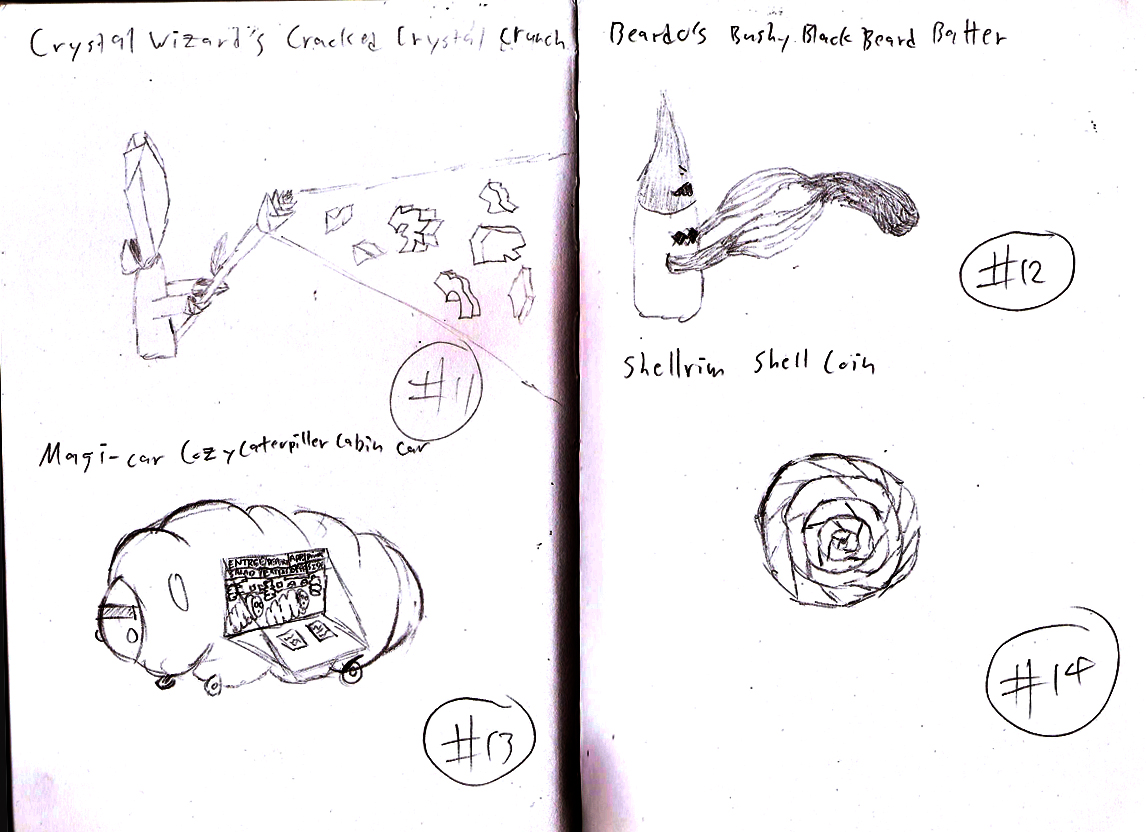 Crystal Wizard's Cracked Crystal Crunch
#11
Magi-car Cozy Caterpiller Cabin car
#13
Beardo's Bushy Black Beard Batter
#12
Shellrim Shell Coin
#14